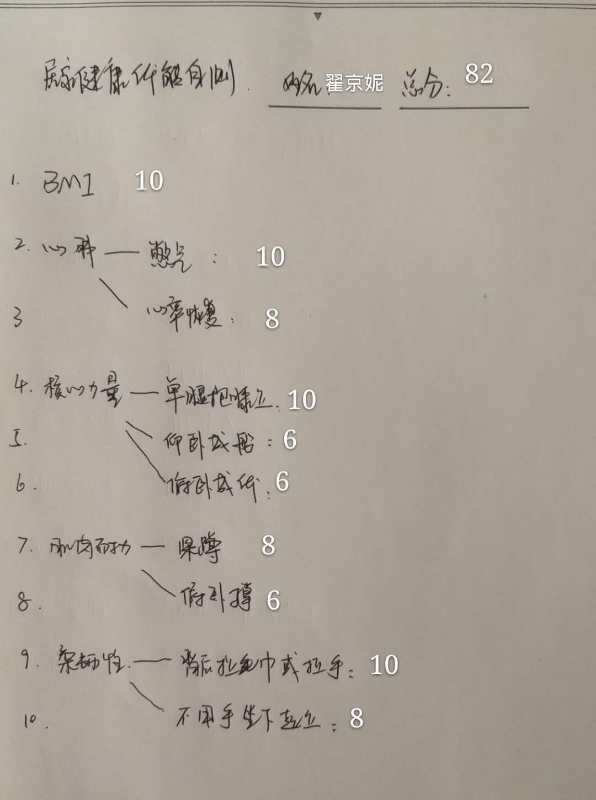 居家健康体能自测. 姓名: 翟京妮 总分: 82
1. BMI 10
2. 心肺 — 憋气: 10
3 心率恢复: 8
4. 核心力量 — 单腿抱膝立. 10
5. 仰卧成船: 6
6. 俯卧成伏: 6
7. 肌肉耐力 — 深蹲 8
8. 俯卧撑 6
9. 柔韧性. — 背后拉毛巾或拉手: 10
10. 不用手坐下起立: 8